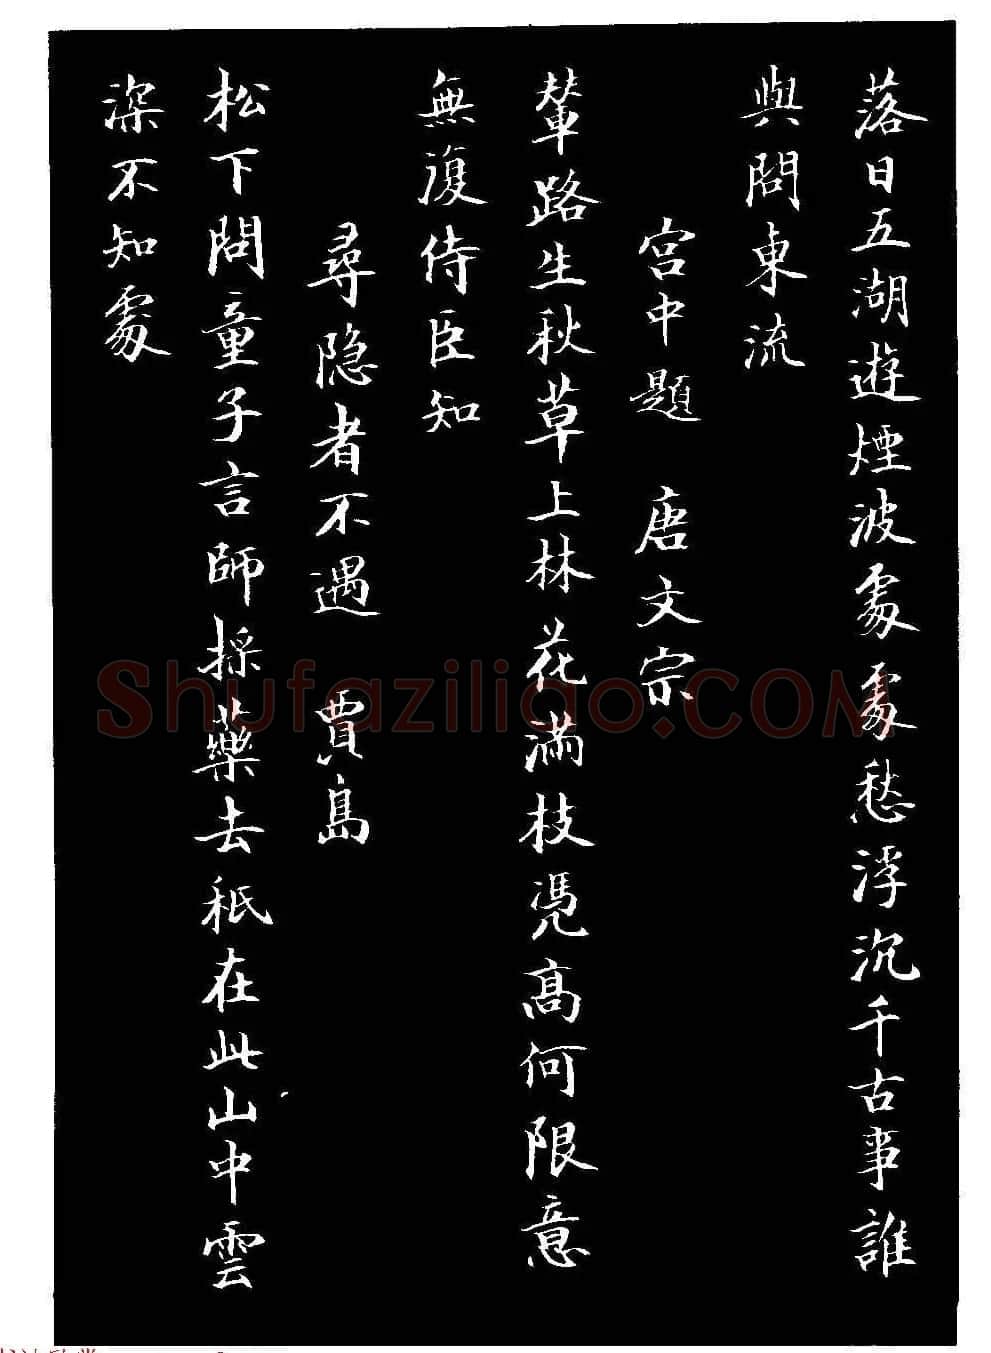 落日五湖遊煙波處處愁浮沉千古事誰
與問東流
宮中題 唐文宗
輦路生秋草上林花滿枝憑高何限意
無復侍臣知
尋隐者不遇 賈島
松下問童子言師採藥去秖在此山中雲
深不知處
Shufaziligo.COM